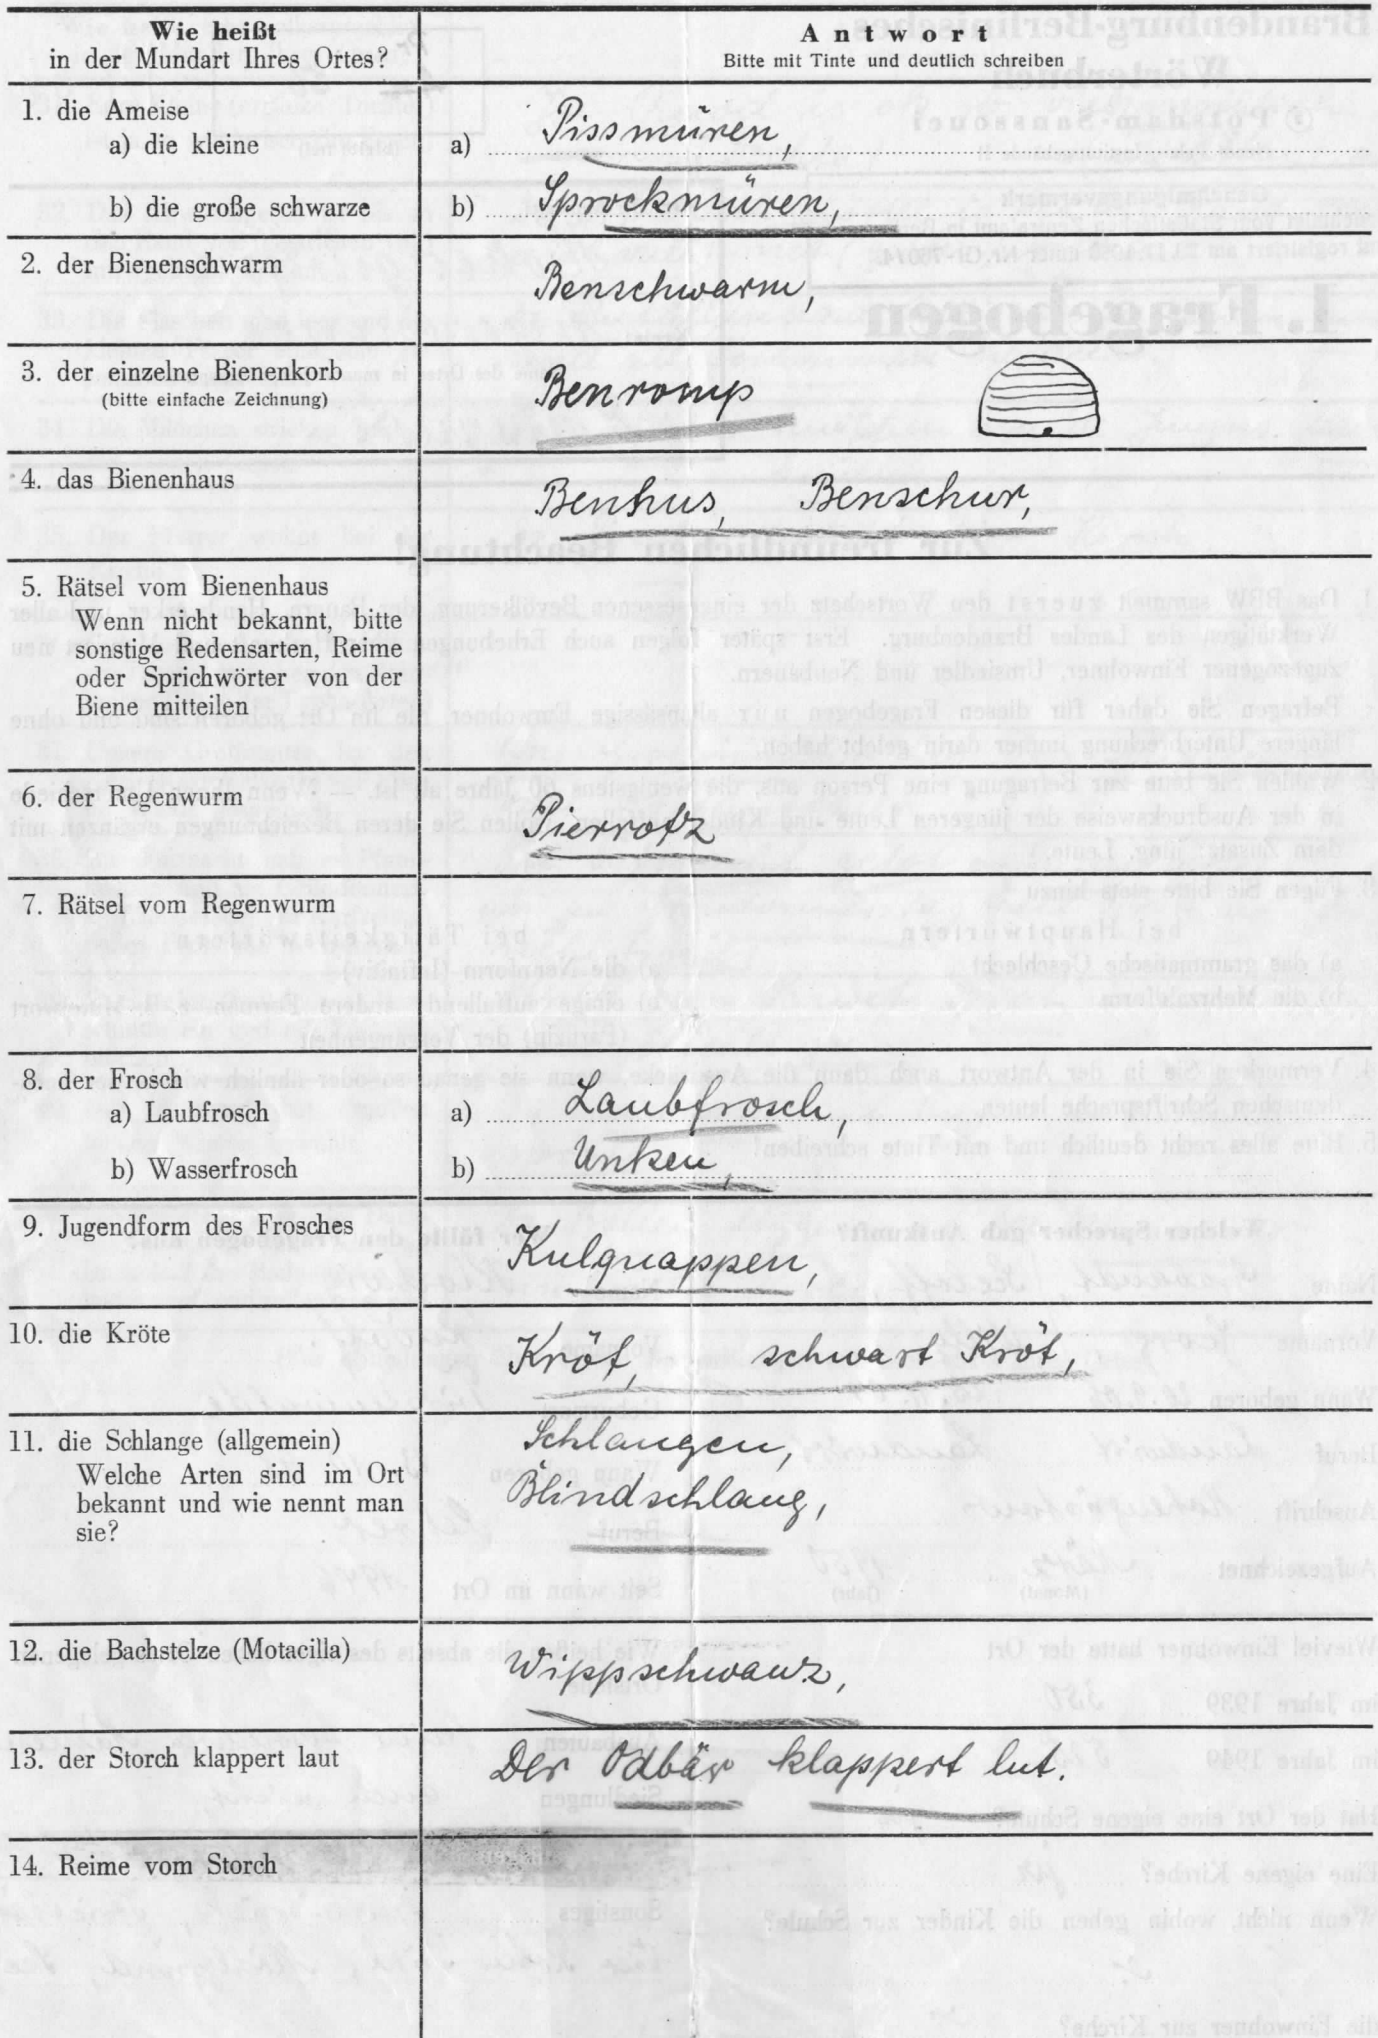 Wie heißt
in der Mundart Ihres Ortes?
Antwort
Bitte mit Tinte und deutlich schreiben
1. die Ameise
a) die kleine
a) Pissmüren,
b) die große schwarze
b) Sprockmüren,
2. der Bienenschwarm
Benschwarm,
3. der einzelne Bienenkorb
(bitte einfache Zeichnung)
Benromp
4. das Bienenhaus
Benhus, Benschur,
5. Rätsel vom Bienenhaus
Wenn nicht bekannt, bitte
sonstige Redensarten, Reime
oder Sprichwörter von der
Biene mitteilen
6. der Regenwurm
Pierrotz
7. Rätsel vom Regenwurm
8. der Frosch
a) Laubfrosch
a) Laubfrosch,
b) Wasserfrosch
b) Unken,
9. Jugendform des Frosches
Kulquappen,
10. die Kröte
Kröt, schwart Kröt,
11. die Schlange (allgemein)
Welche Arten sind im Ort
bekannt und wie nennt man
sie?
Schlangen,
Blindschlang,
12. die Bachstelze (Motacilla)
Wippschwanz,
13. der Storch klappert laut
Der Odbär klappert lut.
14. Reime vom Storch